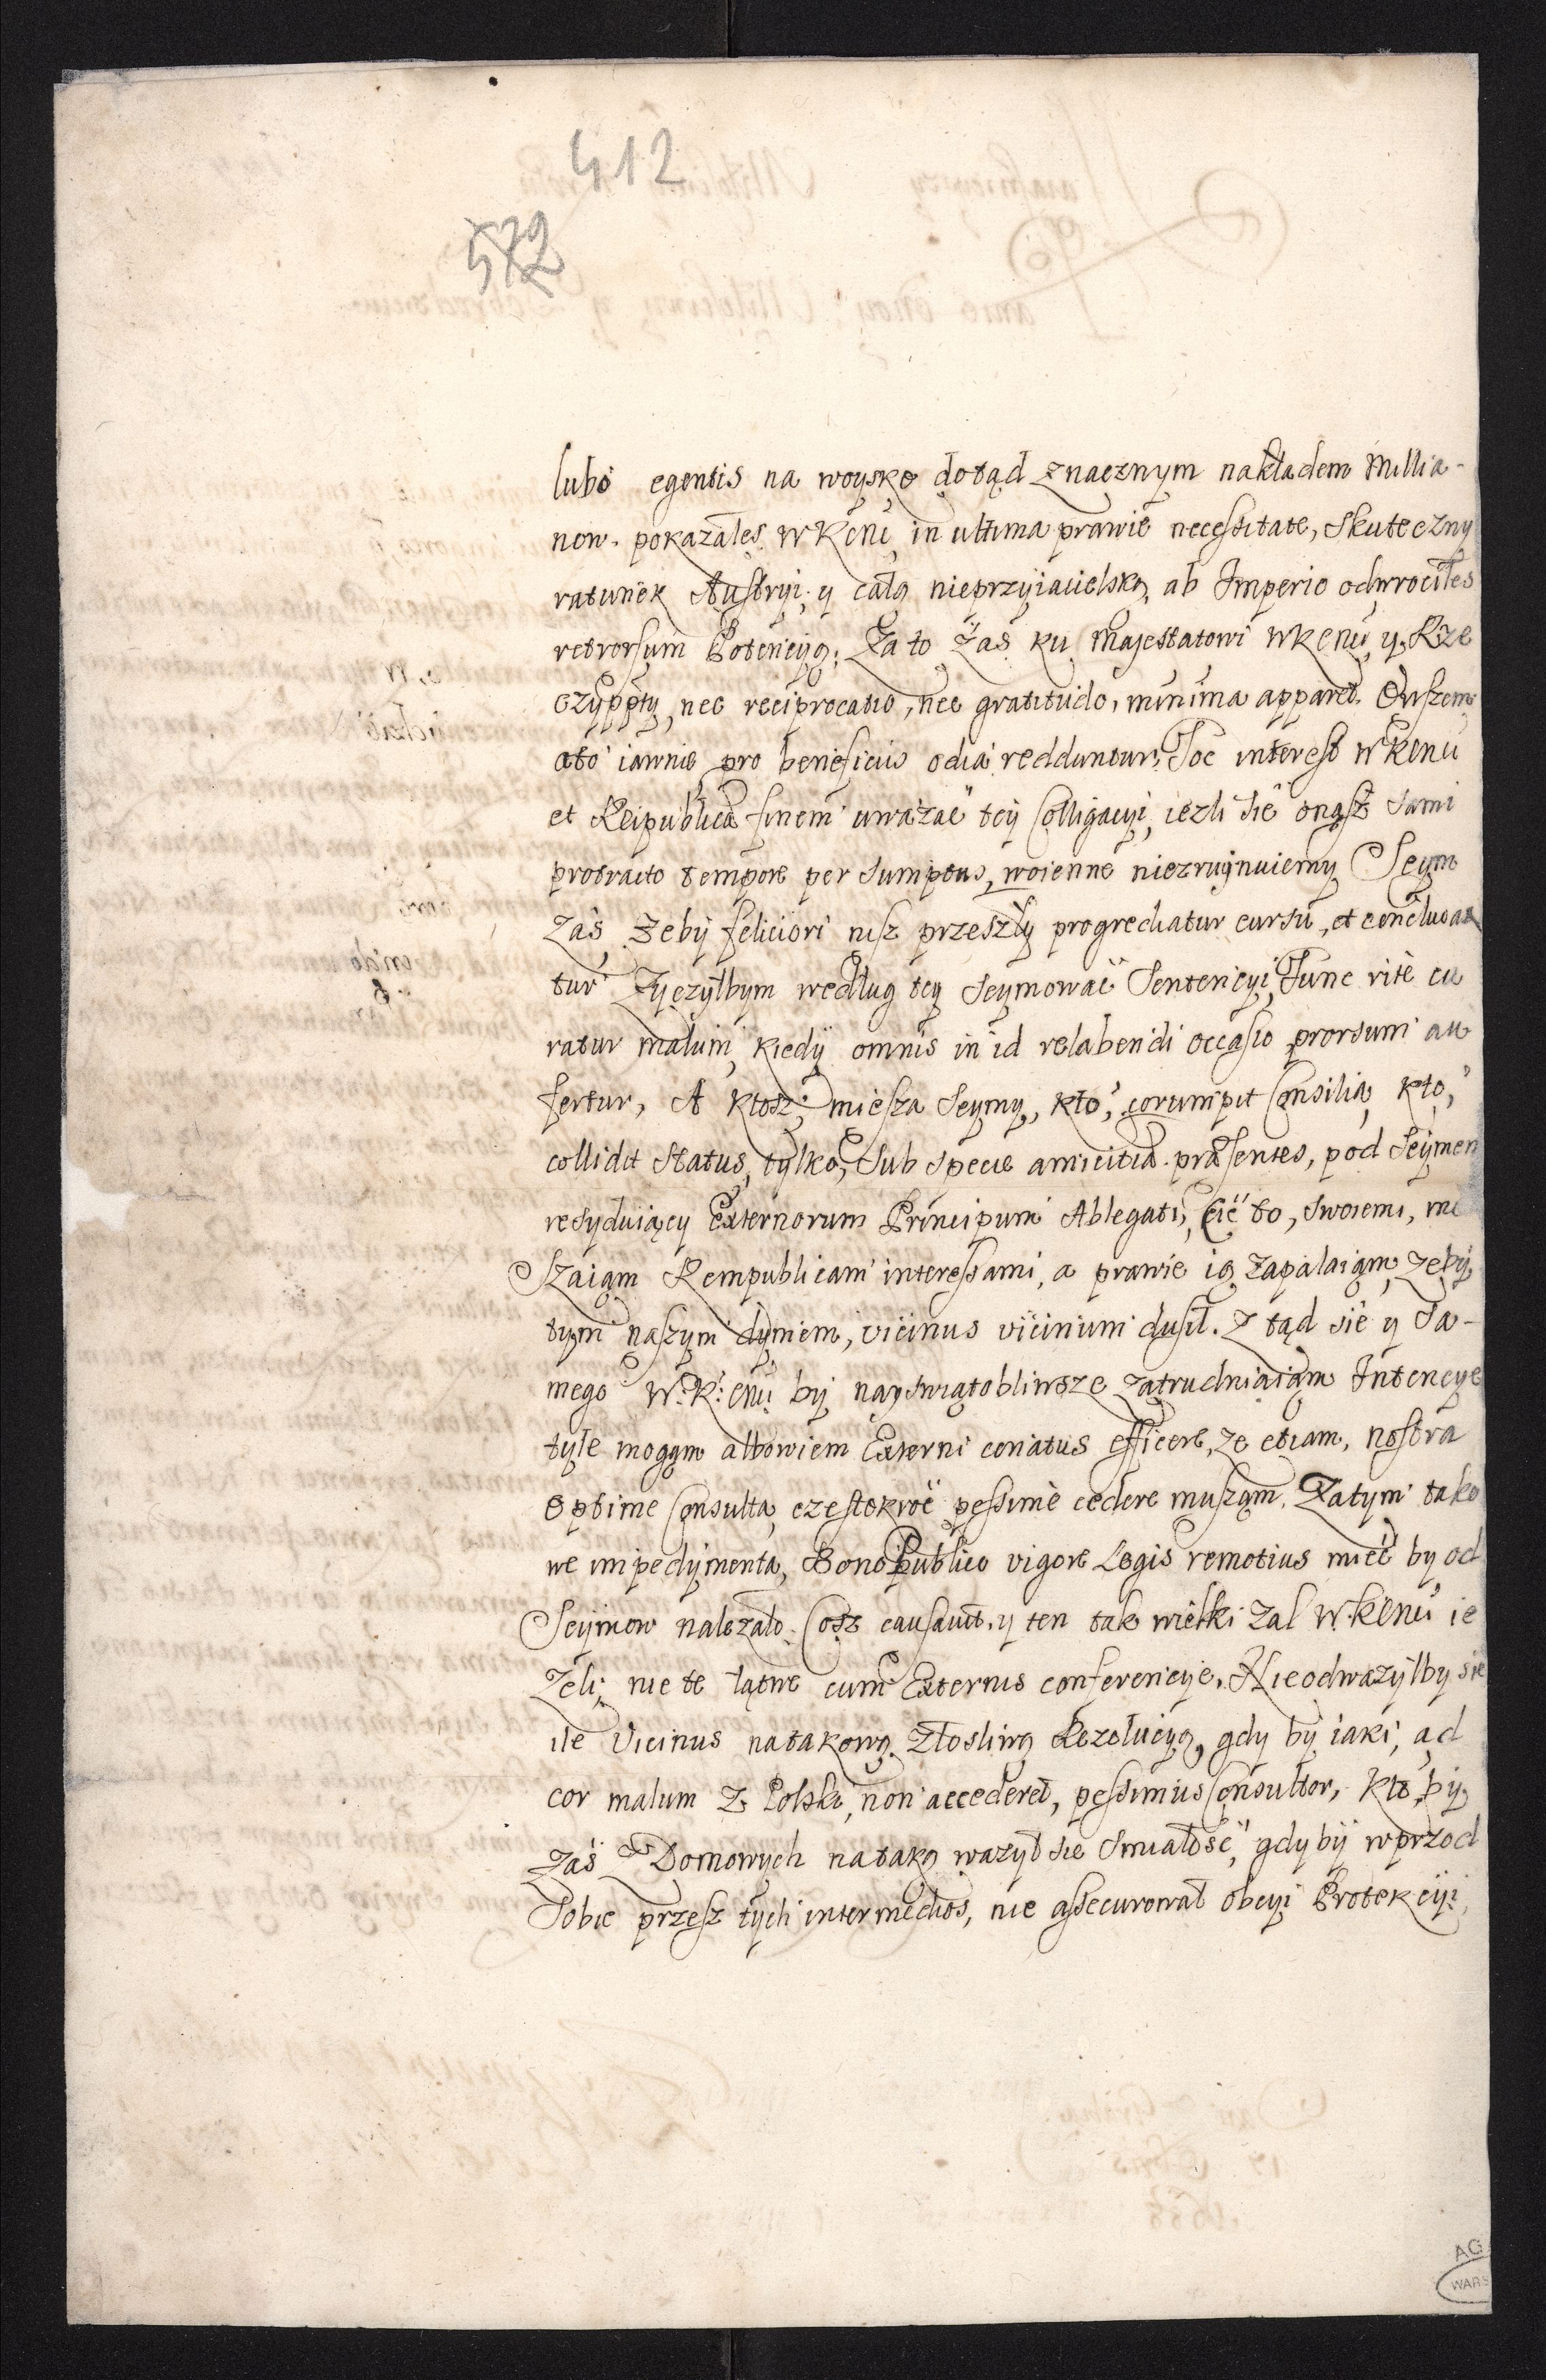 412
572
lubo egentis na woysko dotąd znacznym nakładem Millia-
now. pokazałes WKCMć in ultima prawie necessitate, skuteczny
ratunek Austryi, y całą nieprzyiacielską, ab Imperio odwrociłes
retrorsum Potencyą. Za to zas ku Majestatowi WKCMu y Rze
czyppty, nec reciprocatio, nec gratitudo, minima apparet. Owszem
oto iawnie pro beneficiis odia redduntur. Toc interest WKCMu
et Reipublicæ finem uwazać tey Colligacyi, iezli sie onąsz sami
protracto tempore per sumptus, woienne niezruynuiemy Seym
Zas Zeby feliciori nisz przeszły progrediatur cursu, et concluda
tur Zyczyłbym według tey seymować Sentencyi, Tunc ritè cu
ratur malum, kiedy omnis in id relabendi occasio prorsum au
fertur, A ktosz, miesza Seymy, kto, corumpit Consilia, kto,
collidit Status, tylko, sub specie amicitiæ præsentes, pod Seymem
resyduiący Externorum Principum Ablegati, Cić to, swoiemi, mie
szaiąm Rempublicam interessami, a prawie ią zapalaiąm, zeby
tym naszym dymem, vicinus vicinum dusił. Z tąd sie y sa-
mego W.K.CMu by nayswiątobliwsze zatrudniaiąm Intencye
tyle mogąm albowiem Externi conatus efficere, ze etiam, nostra
optime Consulta, czestokroć pessimè cedere musząm. Zatym tako
we impedymenta, Bono Publico vigore Legis remotius mieć by od
Seymow nalezało. Cosz causavit, y ten tak wielki zal W.KCMu ie
zeli, nie te łatwe cum Externis conferencye. Nieodwazyłby sie
ile Vicinus na takową złosliwą Rezolucyą, gdy by iaki, ad
cor malum z Polski, non accederet, pessimus Consultor, kto by
zaś z Domowych na taką wazył sie smiałość, gdy by wprzod
Sobie przesz tych intermedios, nie assecurował obcyi Protekcyi,
AG
WARS